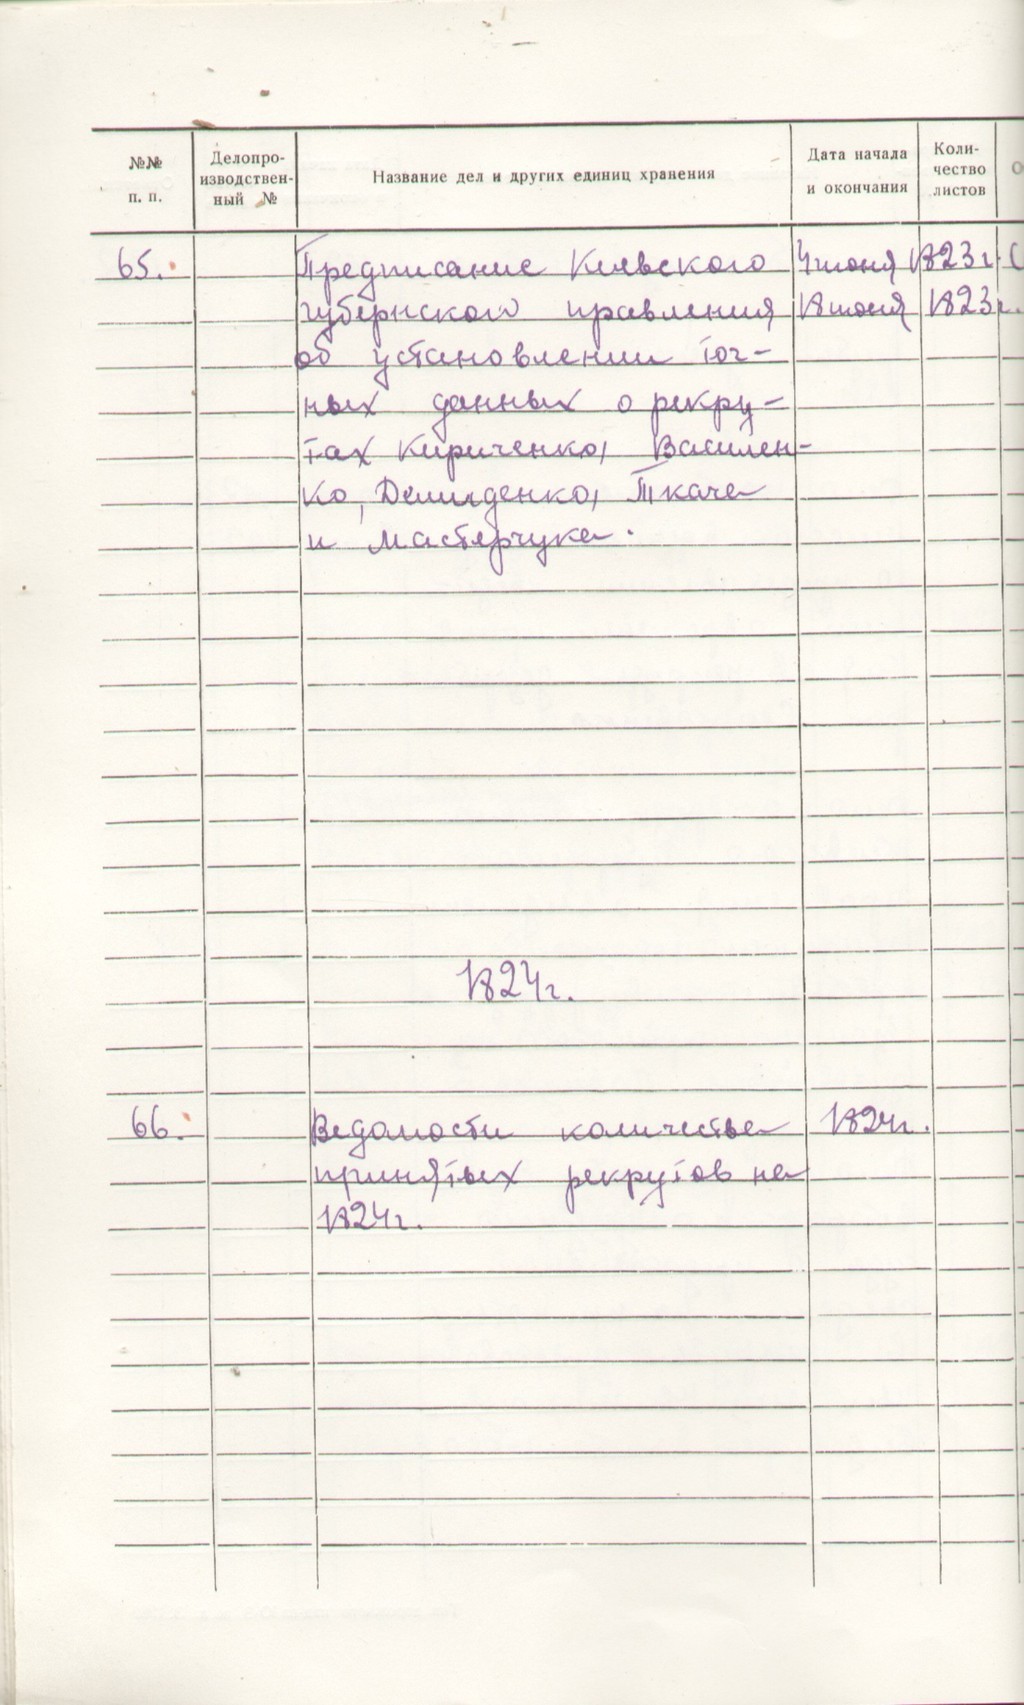 №№ п. п.
Делопро-
изводствен-
ный №
Название дел и других единиц хранения
Дата начала
и окончания
Коли-
чество
листов
65. Предписание Киевского 4 июня 1823 г.
губернского правления 18 июня 1823 г.
об установлении точ-
ных данных о рекру-
тах Кириченко, Василен-
ко, Демиденко, Ткаче
и Мастерчука.
1824 г.
66. Ведомости количества 1824 г.
принятых рекрутов на
1824 г.